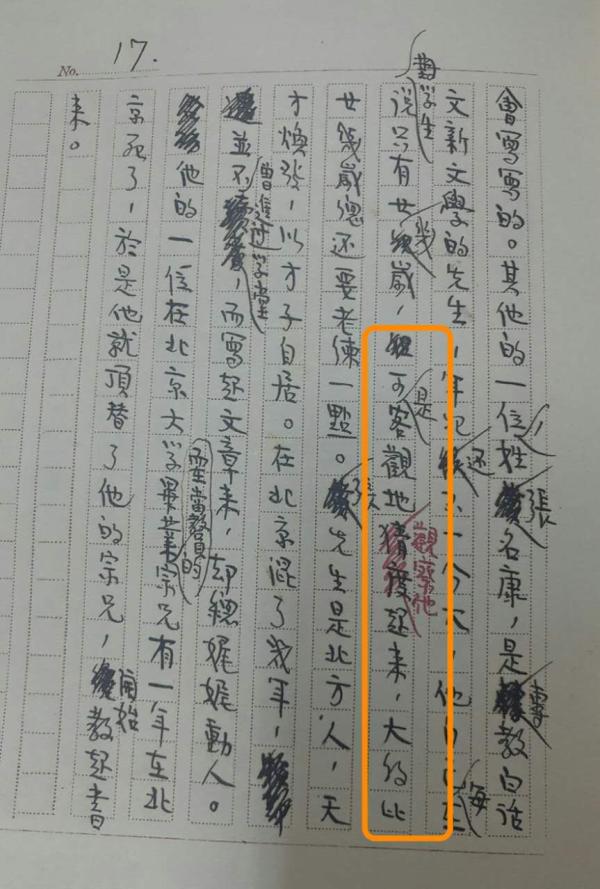 No. 17.
會寫寫的。其他的一位姓張名康，是專教白話
文新文學的先生，年紀還不一分大，他自己在每
對學生說只有廿幾歲，可是客觀地觀察他起來，大約比
廿幾歲總還要老練一點。張先生是北方人，天
才煥發，以才子自居。在北京混了幾年，
並不曾進過學堂，而寫起文章來，却總娓娓動人。
他的一位在北京大學畢業要當教員的宗兄有一年在北
京死了，於是他就頂替了他的宗兄，開始教起書
來。